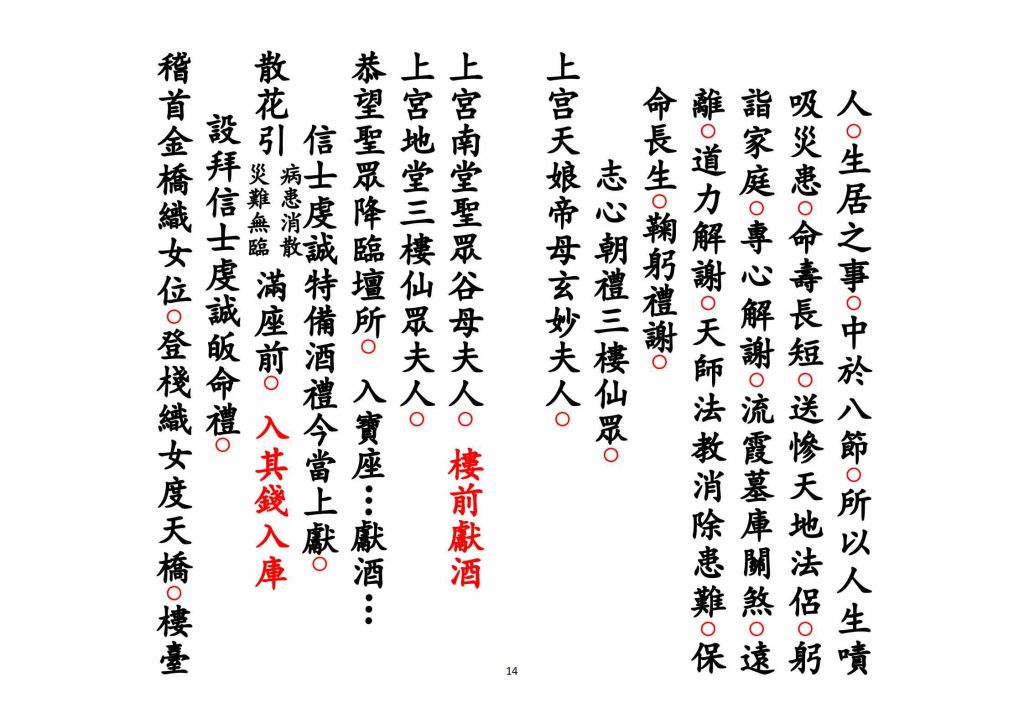 人○生居之事○中於八節○所以人生嘖
吸災患○命壽長短○送慘天地法侶○躬
詣家庭○專心解謝○流霞墓庫關煞○遠
離○道力解謝○天師法教消除患難○保
命長生○鞠躬禮謝○
志心朝禮三樓仙眾○
上宮天娘帝母玄妙夫人○
上宮南堂聖眾谷母夫人○樓前獻酒
上宮地堂三樓仙眾夫人○
恭望聖眾降臨壇所○入寶座…獻酒…
信士虔誠特備酒禮今當上獻○
散花引 病患消散 災難無臨 滿座前○入其錢入庫
設拜信士虔誠皈命禮○
稽首金橋織女位○登棧織女度天橋○樓臺
14